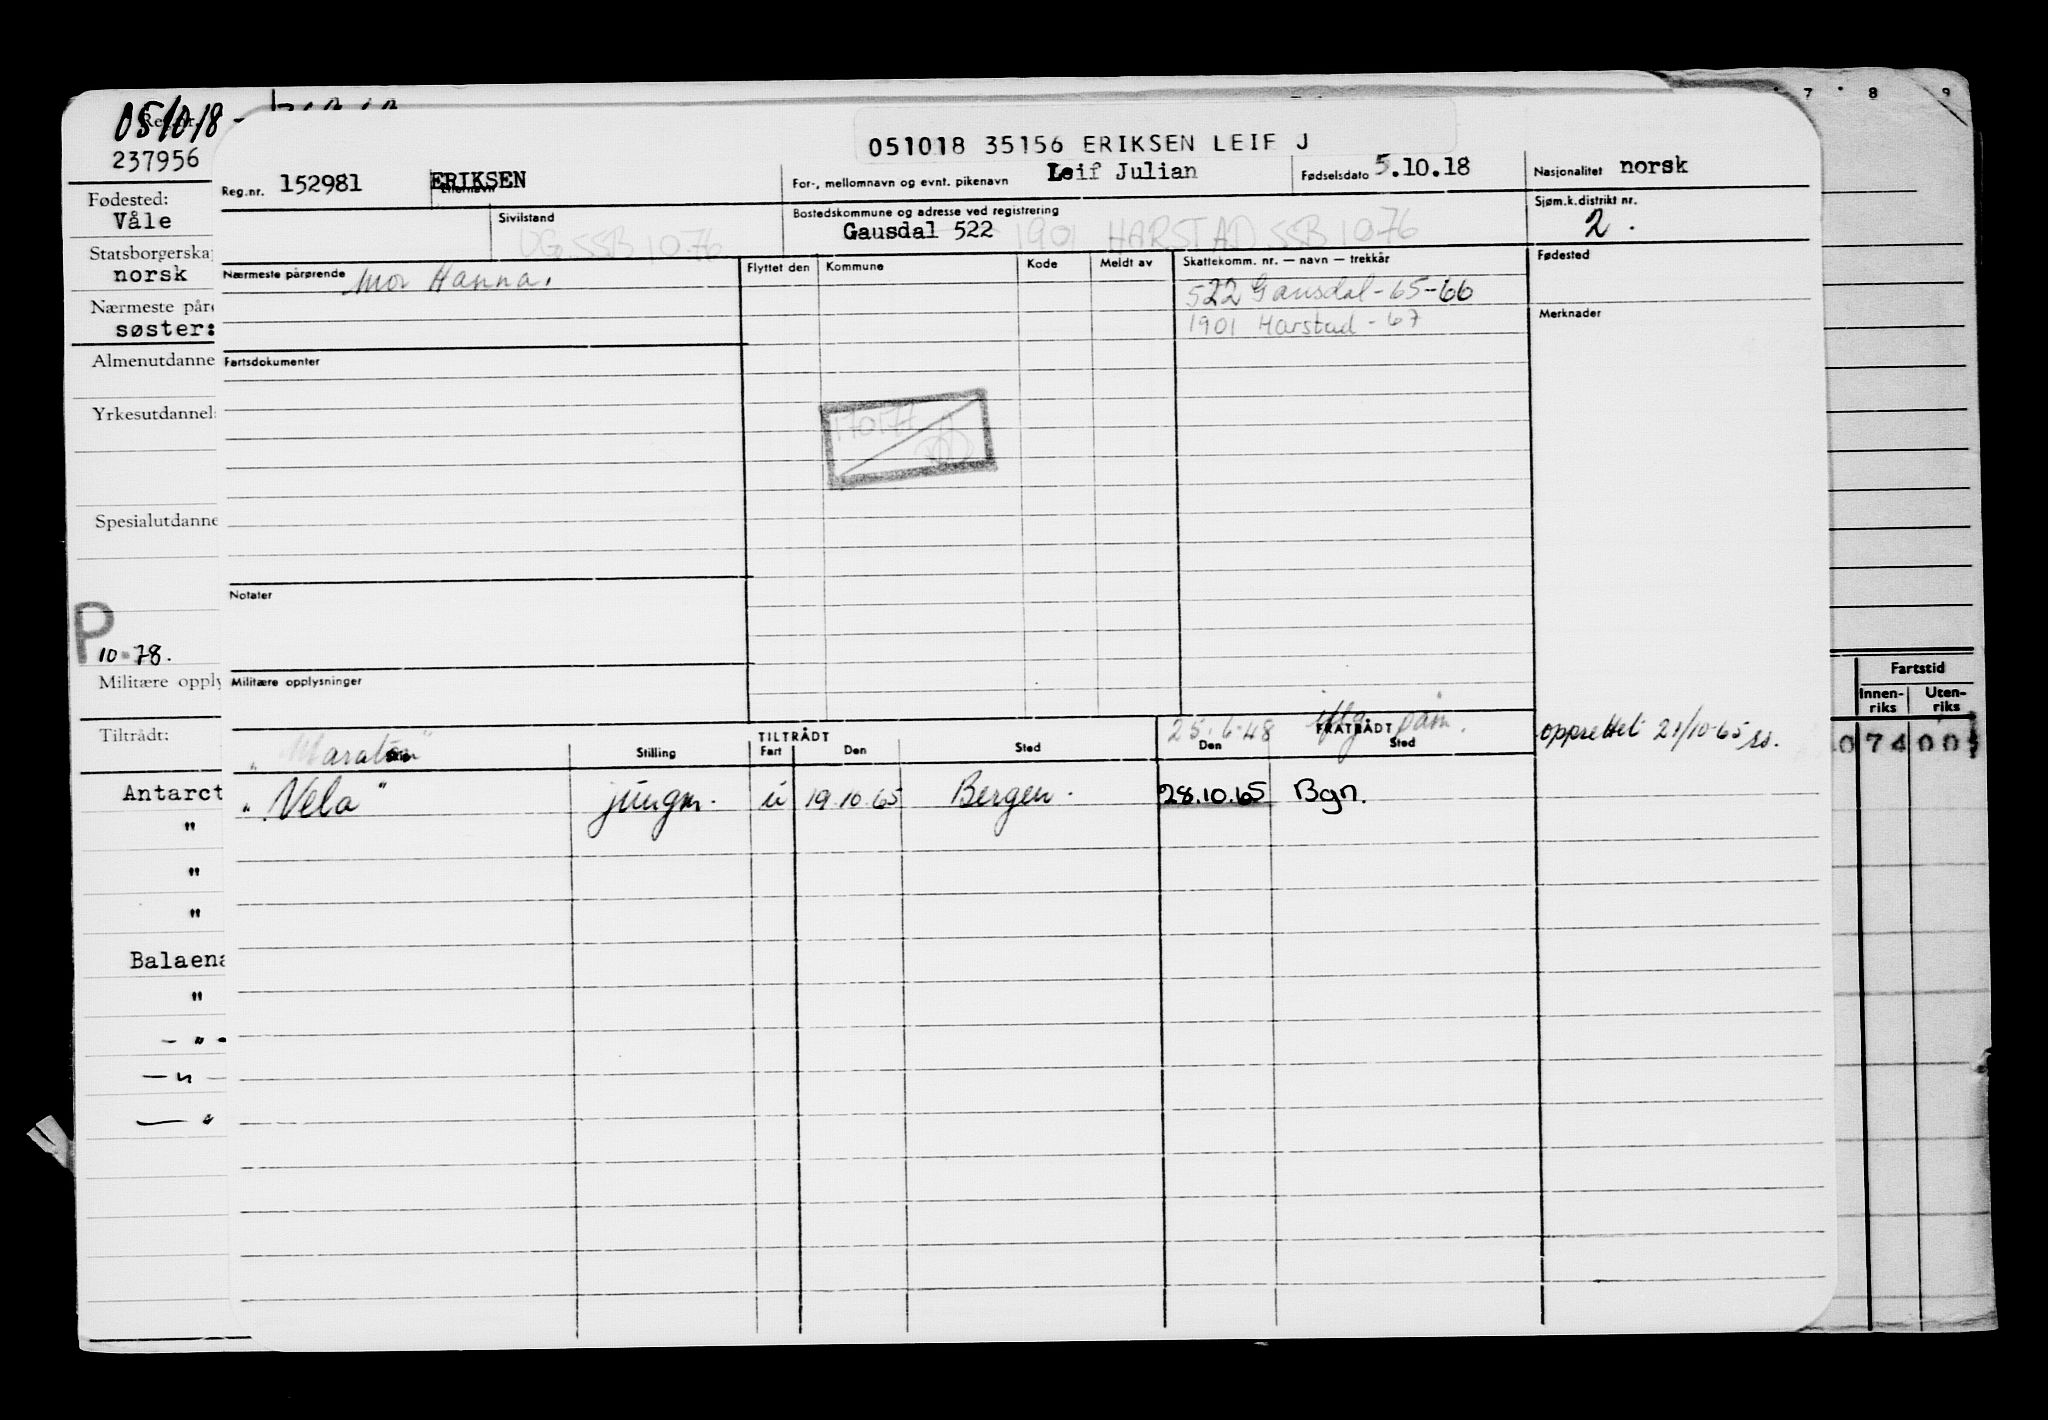 05/10/18
Reg.nr.
237956
Fødested:
Våle
Statsborgerska
norsk
Nærmeste påre
søster:
Almenutdanne
Yrkesutdannels
Spesialutdanne
P
10-78.
Militære opply
Tiltrådt:
Antarct
"
"
"
Balaena
"
- " -
— " —
— "
051018 35156 ERIKSEN LEIF J
Reg.nr. 152981 ERIKSEN
For-, mellomnavn og evnt. pikenavn Leif Julian
Fødselsdato 5.10.18
Nasjonalitet norsk
Sivilstand
UG. SSB 1076
Bostedskommune og adresse ved registrering
Gausdal 522 1901 HARSTAD SSB 1076
Sjøm.k.distrikt nr.
2.
Nærmeste pårørende Mor Hanna.
Flyttet den Kommune Kode Meldt av Skattekomm. nr. — navn — trekkår
522 Gausdal - 65-66
1901 Harstad - 67
Fødested
Merknader
Fartsdokumenter
Notater
Militære opplysninger
TILTRÅDT
25.6.48
FRATRÅDT
Stilling Fart Den Sted Den Sted
"Vela" jungm. u 19.10.65 Bergen. 28.10.65 Bgn.
opprettet 21/10-65 ss.
7 8 9
Fartstid
Innen-
riks
Uten-
riks
0 74 00